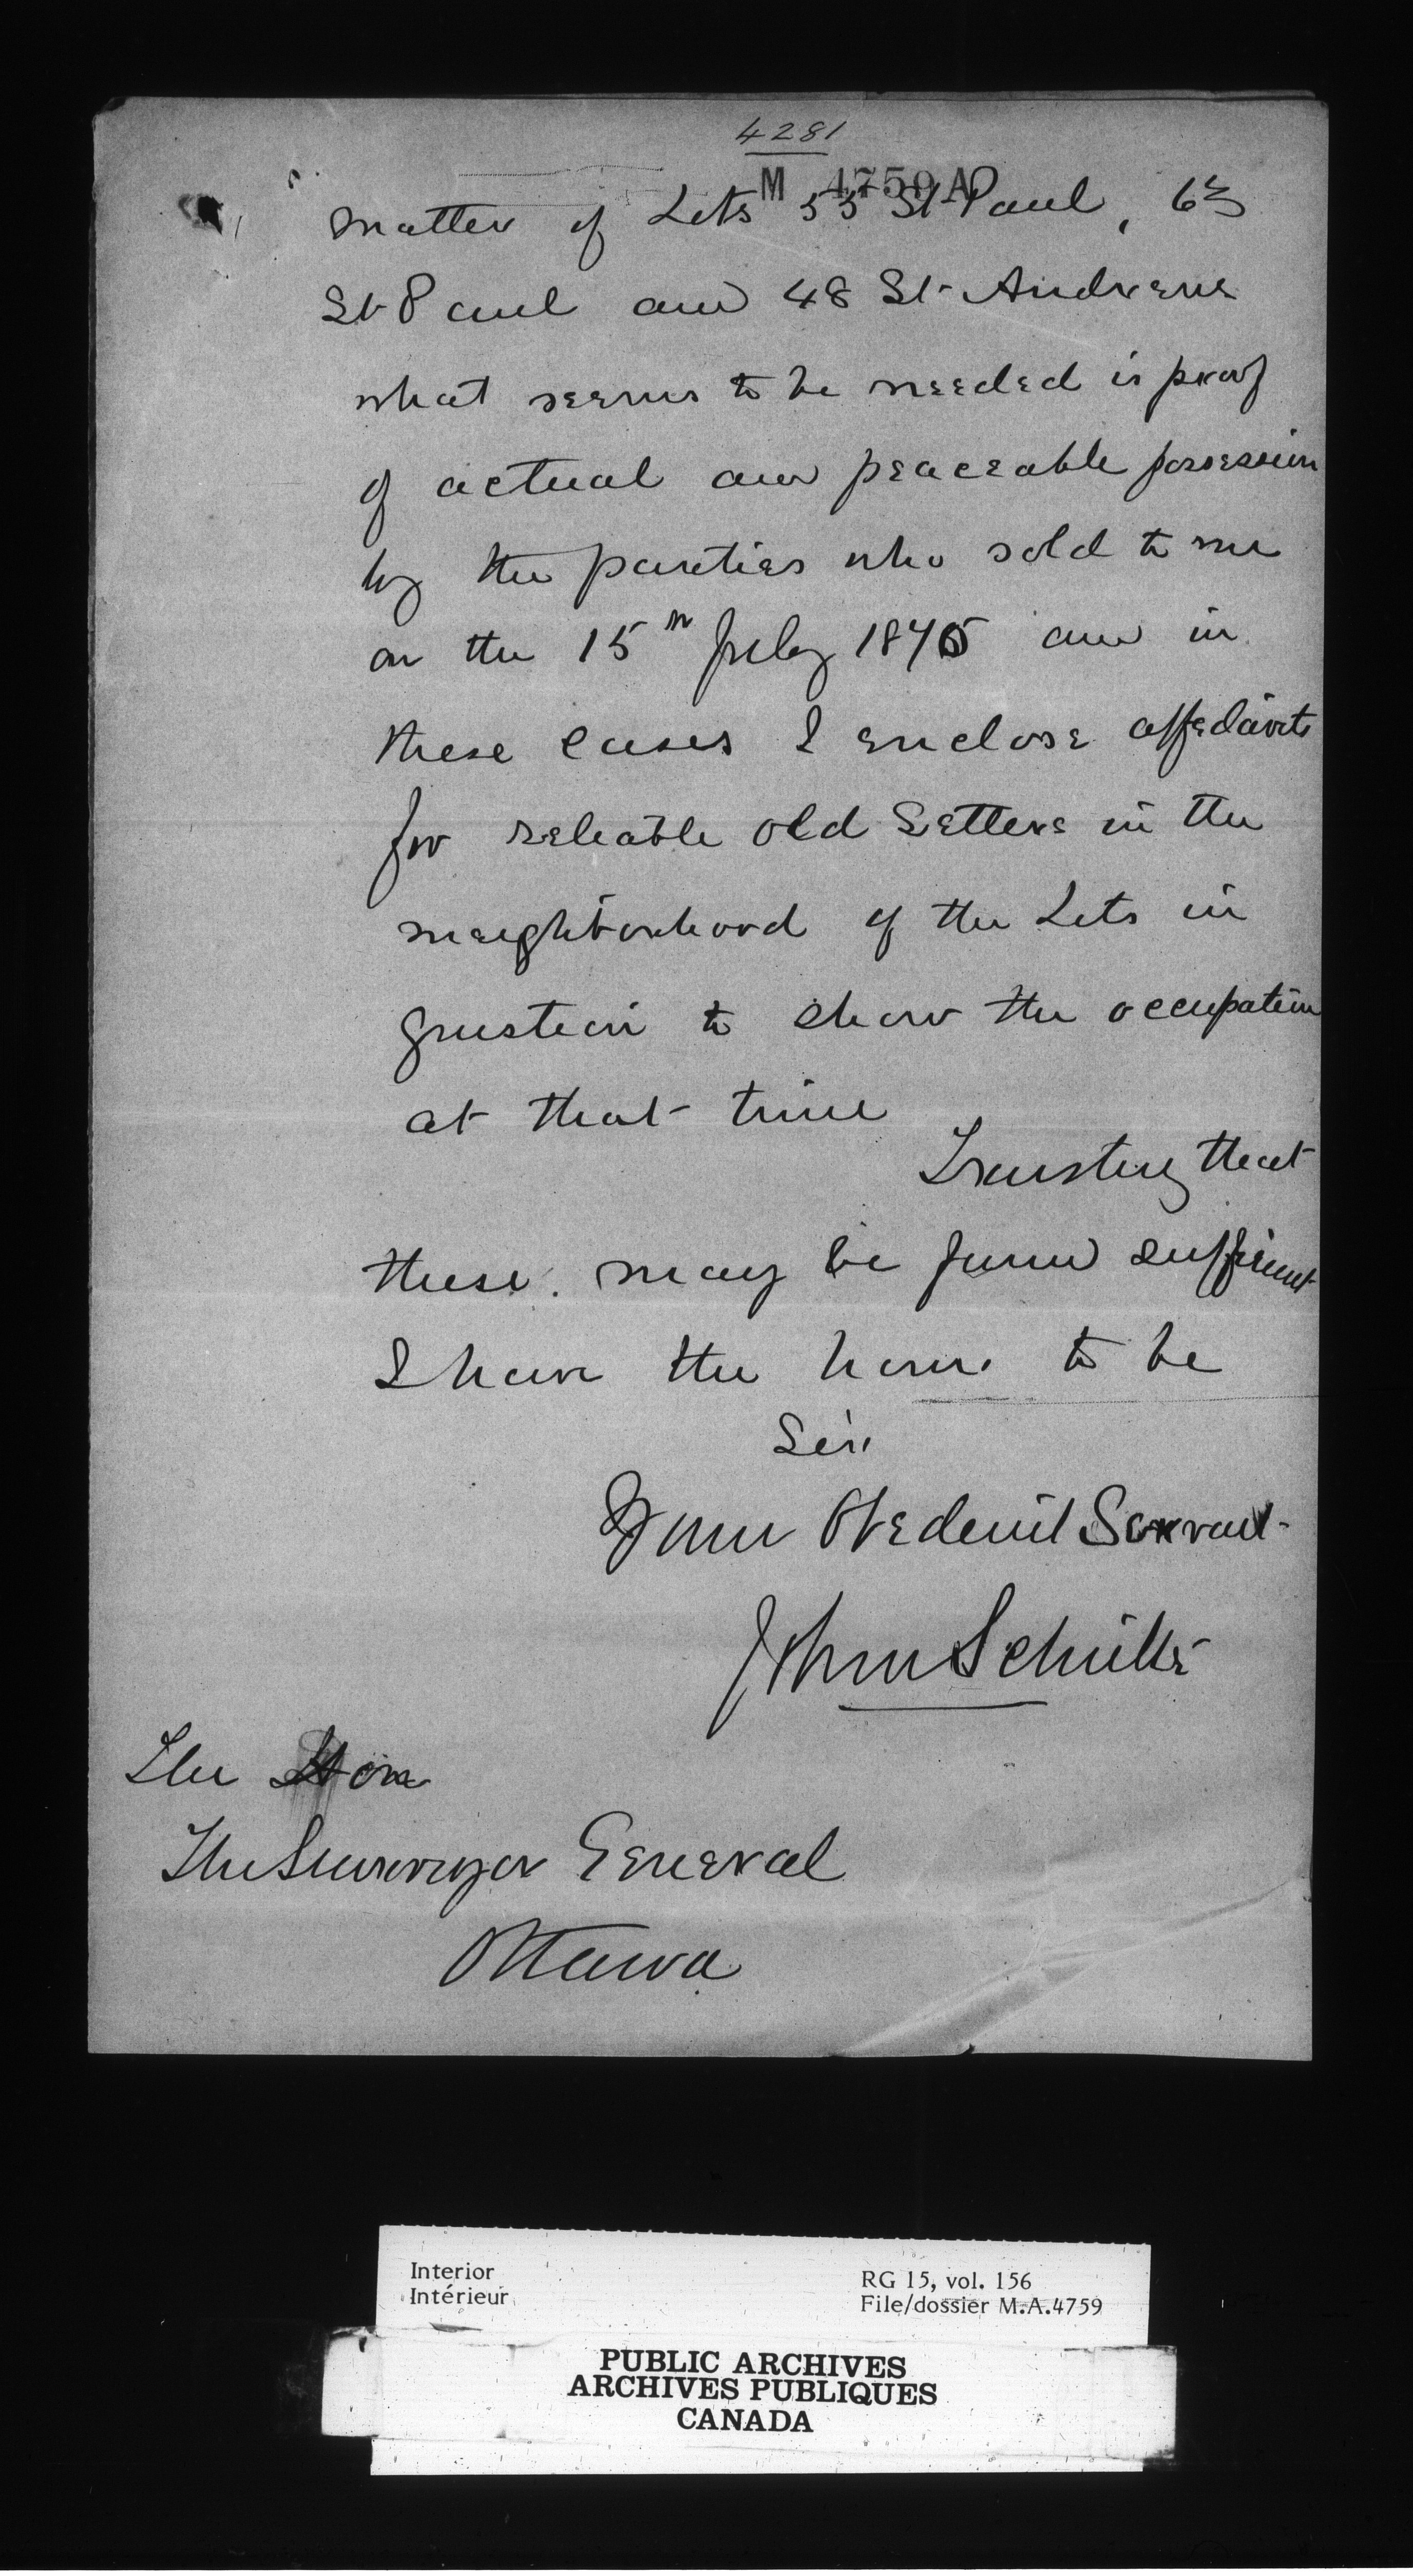 4281
M 4759 A
matter of Lots 55 St Paul, 63
St Paul and 48 St Andrews
what seems to be needed is proof
of actual and peaceable possession
by the parties who sold to me
on the 15th July 1870 and in
these cases I enclose affedavits
for reliable old Settlers in the
neighborhood of the Lots in
question to show the occupation
at that time
Trusting that
these may be found sufficient
I have the honor to be
Sir
Your Obedient Servant
John Schultz
The Hon
The Surveyor General
Ottawa
Interior
Intérieur
RG 15, vol. 156
File/dossier M.A.4759
PUBLIC ARCHIVES
ARCHIVES PUBLIQUES
CANADA